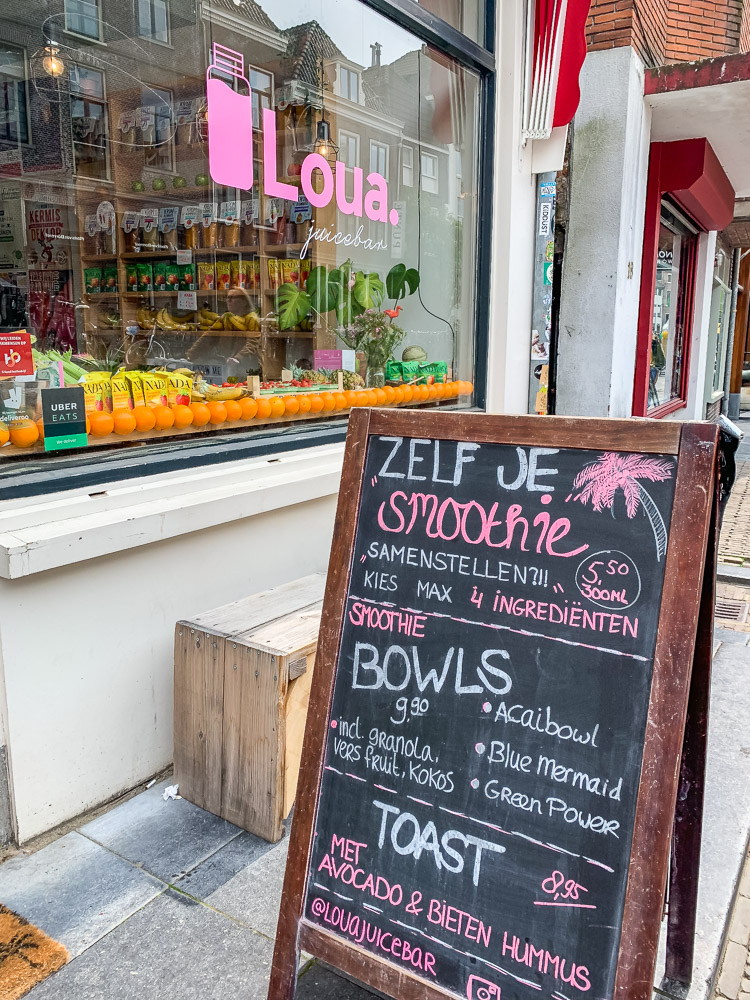 Loua.
juicebar
KERMIS
KIDDUST
NADA
NADA
deliveroo
UBER
EATS
"ZELF JE
smoothie"
"SAMENSTELLEN?!!"
5,50
300ML
KIES MAX 4 INGREDIËNTEN
SMOOTHIE
BOWLS
9,90
• incl. granola,
vers fruit, kokos
• Acaibowl
• Blue Mermaid
• Green Power
TOAST
8,95
MET
AVOCADO & BIETEN HUMMUS
@LOUAJUICEBAR